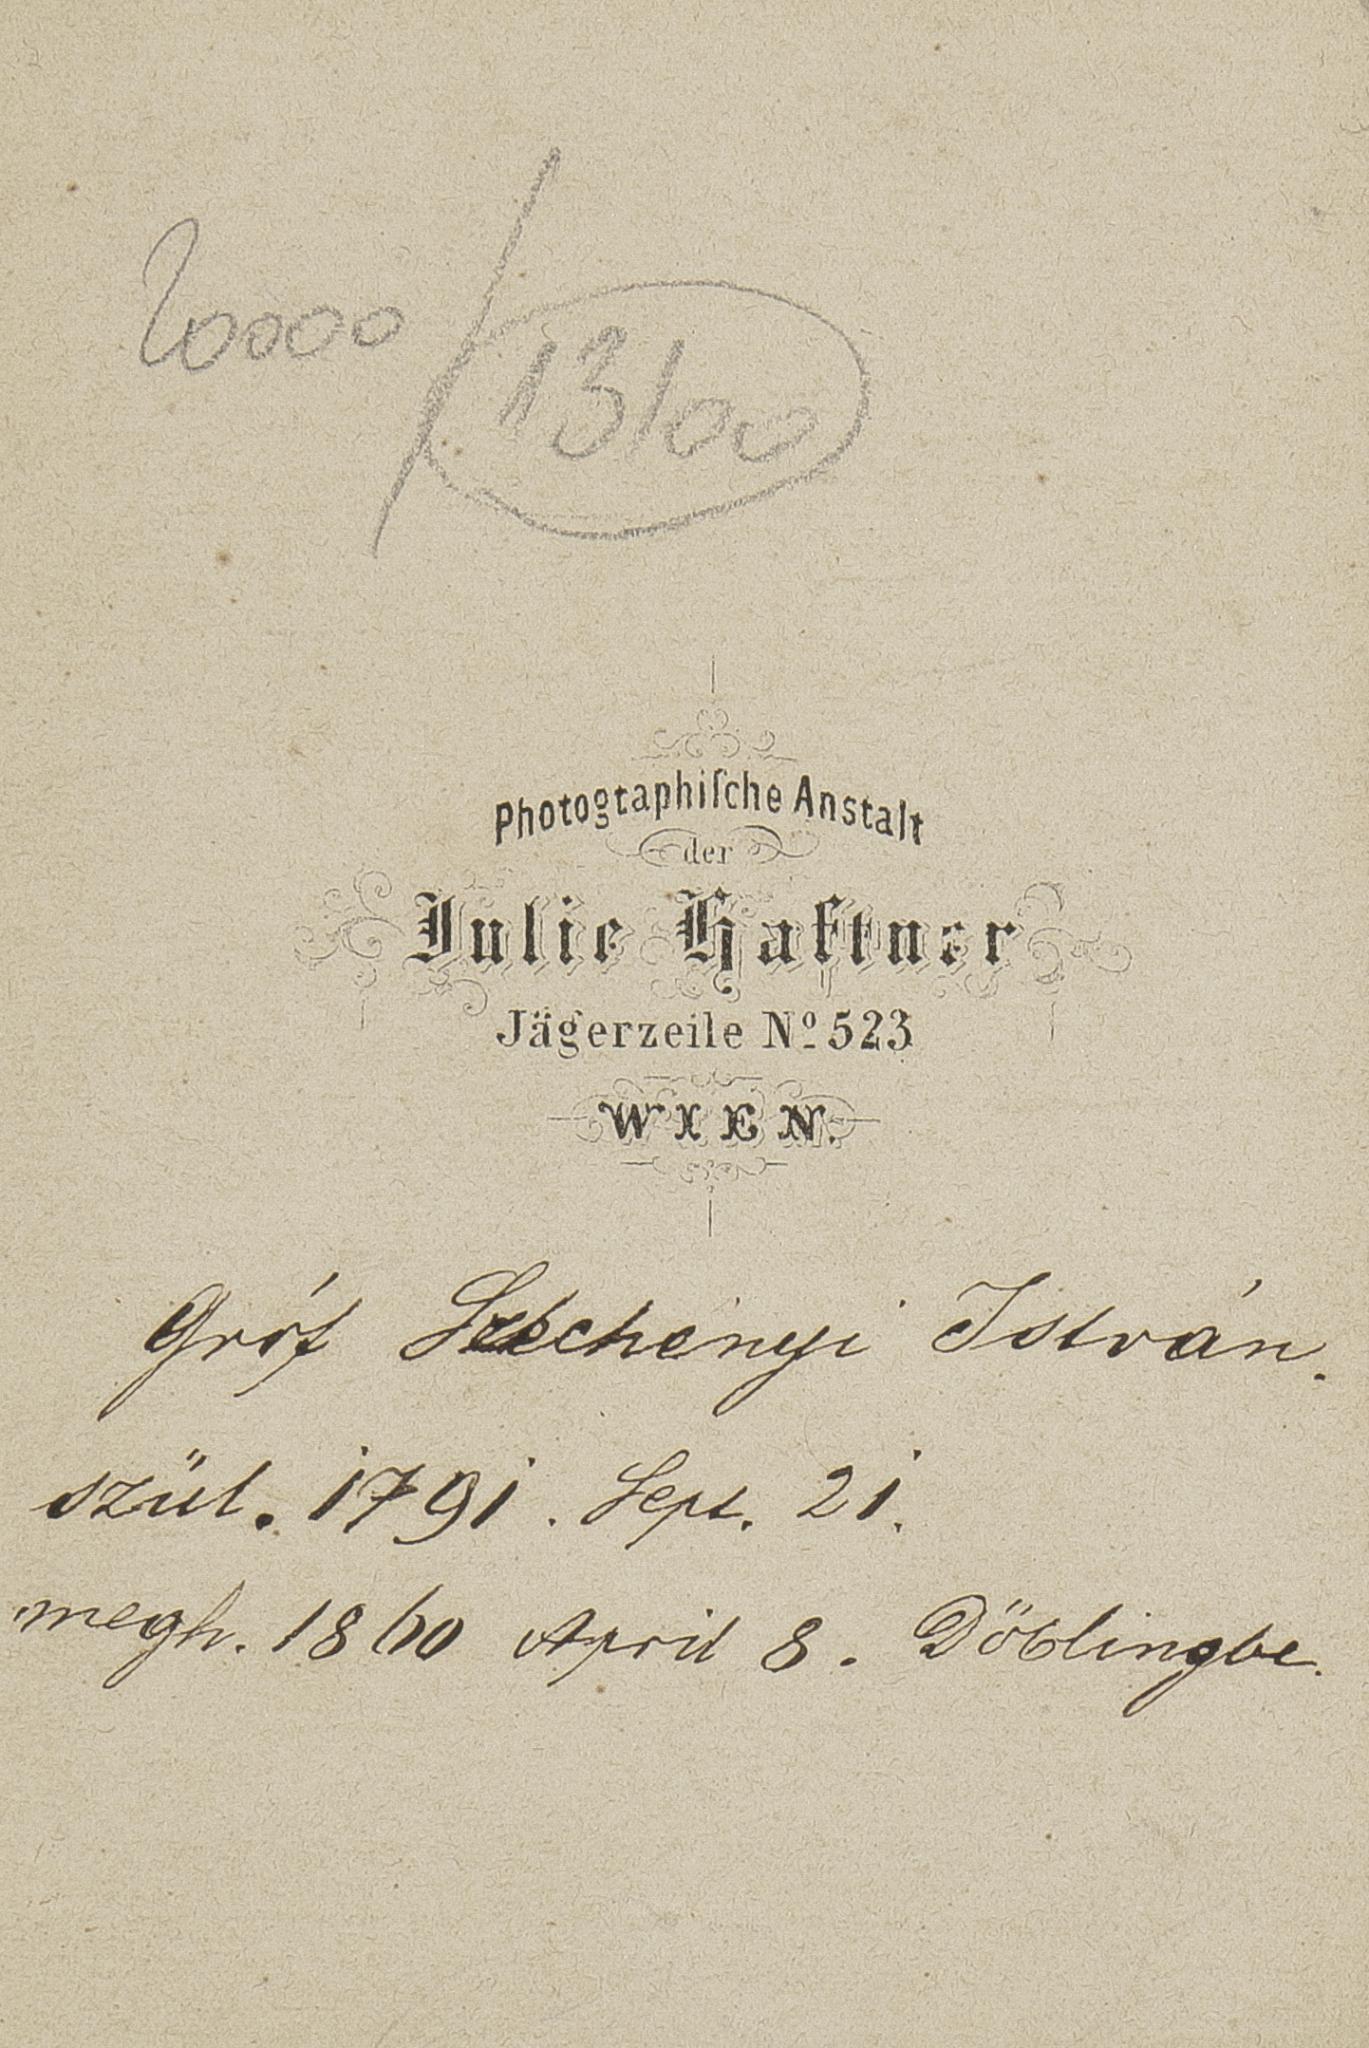 20000
13100
Photographiſche Anstalt
der
Julie Haftner
Jägerzeile Nº 523
WIEN.
Gróf Széchényi István.
szül. 1791. Sept. 21.
megh. 1860 April 8. Döblingbe.